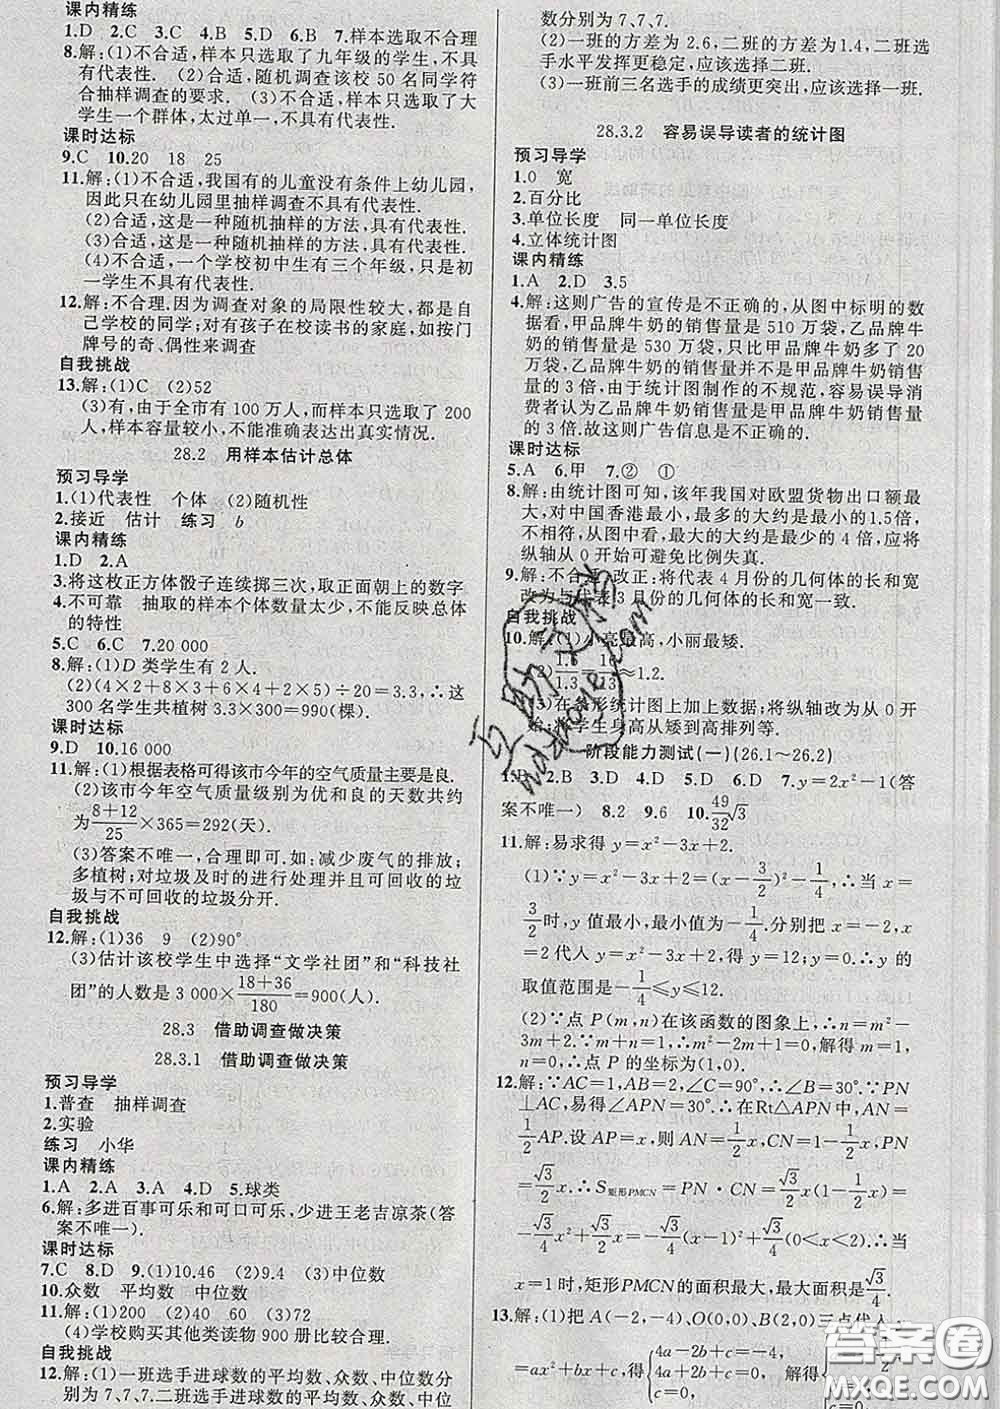 课内精练
1.D 2.C 3.C 4.B 5.D 6.B 7.样本选取不合理
8.解:(1)不合适,样本只选取了九年级的学生,不具
有代表性. (2)合适,随机调查该校 50 名同学符
合抽样调查的要求. (3)不合适,样本只选取了大
学生一个群体,太过单一,不具有代表性.
课时达标
9.C 10.20 18 25
11.解:(1)不合适,我国有的儿童没有条件上幼儿园,
因此只在幼儿园里抽样调查不具有代表性.
(2)合适,这是一种随机抽样的方法,具有代表性.
(3)合适,这是一种随机抽样的方法,具有代表性.
(4)不合适,一个学校初中生有三个年级,只是初
一学生不具有代表性.
12.解:不合理.因为调查对象的局限性较大,都是自
己学校的同学;对有孩子在校读书的家庭,如按门
牌号的奇、偶性来调查
自我挑战
13.解:(1)C (2)52
(3)有,由于全市有 100 万人,而样本只选取了 200
人,样本容量较小,不能准确表达出真实情况.
28.2 用样本估计总体
预习导学
1.(1)代表性 个体 (2)随机性
2.接近 估计 练习 b
课内精练
1.D 2.A
3.将这枚正方体骰子连续掷三次,取正面朝上的数字
4.不可靠 抽取的样本个体数量太少,不能反映总体
的特性
5.C 6.C 7.20 000
8.解:(1)D 类学生有 2 人.
(2)(4×2+8×3+6×4+2×5)÷20=3.3,∴这
300 名学生共植树 3.3×300=990(棵).
课时达标
9.D 10.16 000
11.解:(1)根据表格可得该市今年的空气质量主要是良.
(2)该市今年空气质量级别为优和良的天数共约
为 (8+12)/25 ×365=292(天).
(3)答案不唯一,合理即可.如:减少废气的排放;
多植树;对垃圾及时的进行处理并且可回收的垃
圾与不可回收的垃圾分开.
自我挑战
12.解:(1)36 9 (2)90°
(3)估计该校学生中选择“文学社团”和“科技社
团”的人数是 3 000× (18+36)/180 =900(人).
28.3 借助调查做决策
28.3.1 借助调查做决策
预习导学
1.普查 抽样调查
2.实验
练习 小华
课内精练
1.A 2.A 3.A 4.D 5.球类
6.解:多进百事可乐和可口可乐,少进王老吉凉茶(答
案不唯一).
课时达标
7.C 8.D 9.(1)10.46 (2)9.4 (3)中位数
10.众数 平均数 中位数
11.解:(1)200 (2)40 60 (3)72
(4)学校购买其他类读物 900 册比较合理.
自我挑战
12.解:(1)一班选手进球数的平均数、众数、中位数分
别为 7,7,7,二班选手进球数的平均数、众数、中位
数分别为 7、7、7.
(2)一班的方差为 2.6,二班的方差为1.4,二班选
手水平发挥更稳定,应该选择二班.
(3)一班前三名选手的成绩更突出,应该选择一班.
28.3.2 容易误导读者的统计图
预习导学
1.0 宽
2.百分比
3.单位长度 同一单位长度
4.立体统计图
课内精练
1.A 2.D 3.5
4.解:这则广告的宣传是不正确的,从图中标明的数
据看,甲品牌牛奶的销售量是 510 万袋,乙品牌牛
奶的销售量是 530 万袋,只比甲品牌牛奶多了 20
万袋,乙品牌牛奶的销售量并不是甲品牌牛奶销售
量的 3 倍,由于统计图制作的不规范,容易误导消
费者认为乙品牌牛奶销售量是甲品牌牛奶销售量
的 3 倍.故这则广告信息是不正确的.
课时达标
5.A 6.甲 7.② ①
8.解:由统计图可知,该年我国对欧盟货物出口额最
大,对中国香港最小,最多的大约是最小的1.5倍,
不相符,从图中看,最大的大约是最少的 4 倍,应将
纵轴从 0 开始可避免比例失真.
9.解:不合适.改正:将代表 4 月份的几何体的长和宽
改为与代表 3 月份的几何体的长和宽一致.
自我挑战
10.解:(1)小亮最高,小丽最矮.
(2) 1.6/1.3 = 16/13 ≈1.2.
(3)在条形统计图上加上数据;将纵轴改为从 0 开
始;将学生身高从矮到高排列等.
阶段能力测试(一)(26.1～26.2)
2.B 3.D 4.D 5.D 6.D 7.y=2x²-1(答
案不唯一) 8.2 9.6 10. 49/32 √3
11.解:易求得 y=x²-3x+2.
(1)∵y=x²-3x+2=(x- 3/2 )²- 1/4 ,∴当 x=
3/2 时,y 值最小,最小值为- 1/4 .分别把 x=-2,x
=2代入 y=x²-3x+2,得 y=12;y=0.∴y 的
取值范围是- 1/4 ≤y≤12.
(2)∵点 P(m,n)在该函数的图象上,∴n=m²-
3m+2.∵m+n=1,∴m²-2m+1=0,解得 m=1,
n=0.∴点 P 的坐标为(1,0).
12.解:∵AC=1,AB=2,∠C=90°,∴∠B=30°.∵PN
⊥AC,易得∠APN=30°,∴在Rt△APN 中,AN=
1/2 AP.设 AP=x,则 AN= 1/2 x,CN=1- 1/2 x,PN
= √3/2 x.∴S矩形PMCN=PN·CN= √3/2 x(1- 1/2 x)=
- √3/4 x²+ √3/2 x=- √3/4 (x-1)²+ √3/4 (0<x<2).∴当
x=1时,矩形PMCN的面积最大,最大面积是 √3/4 .
13.解:(1)把 A(-2,-4),O(0,0),B(2,0)三点代入 y
=ax²+bx+c,得 { 4a-2b+c=-4, 4a+2b+c=0, c=0, 解得
c=0.
答案圈
MXQE.COM